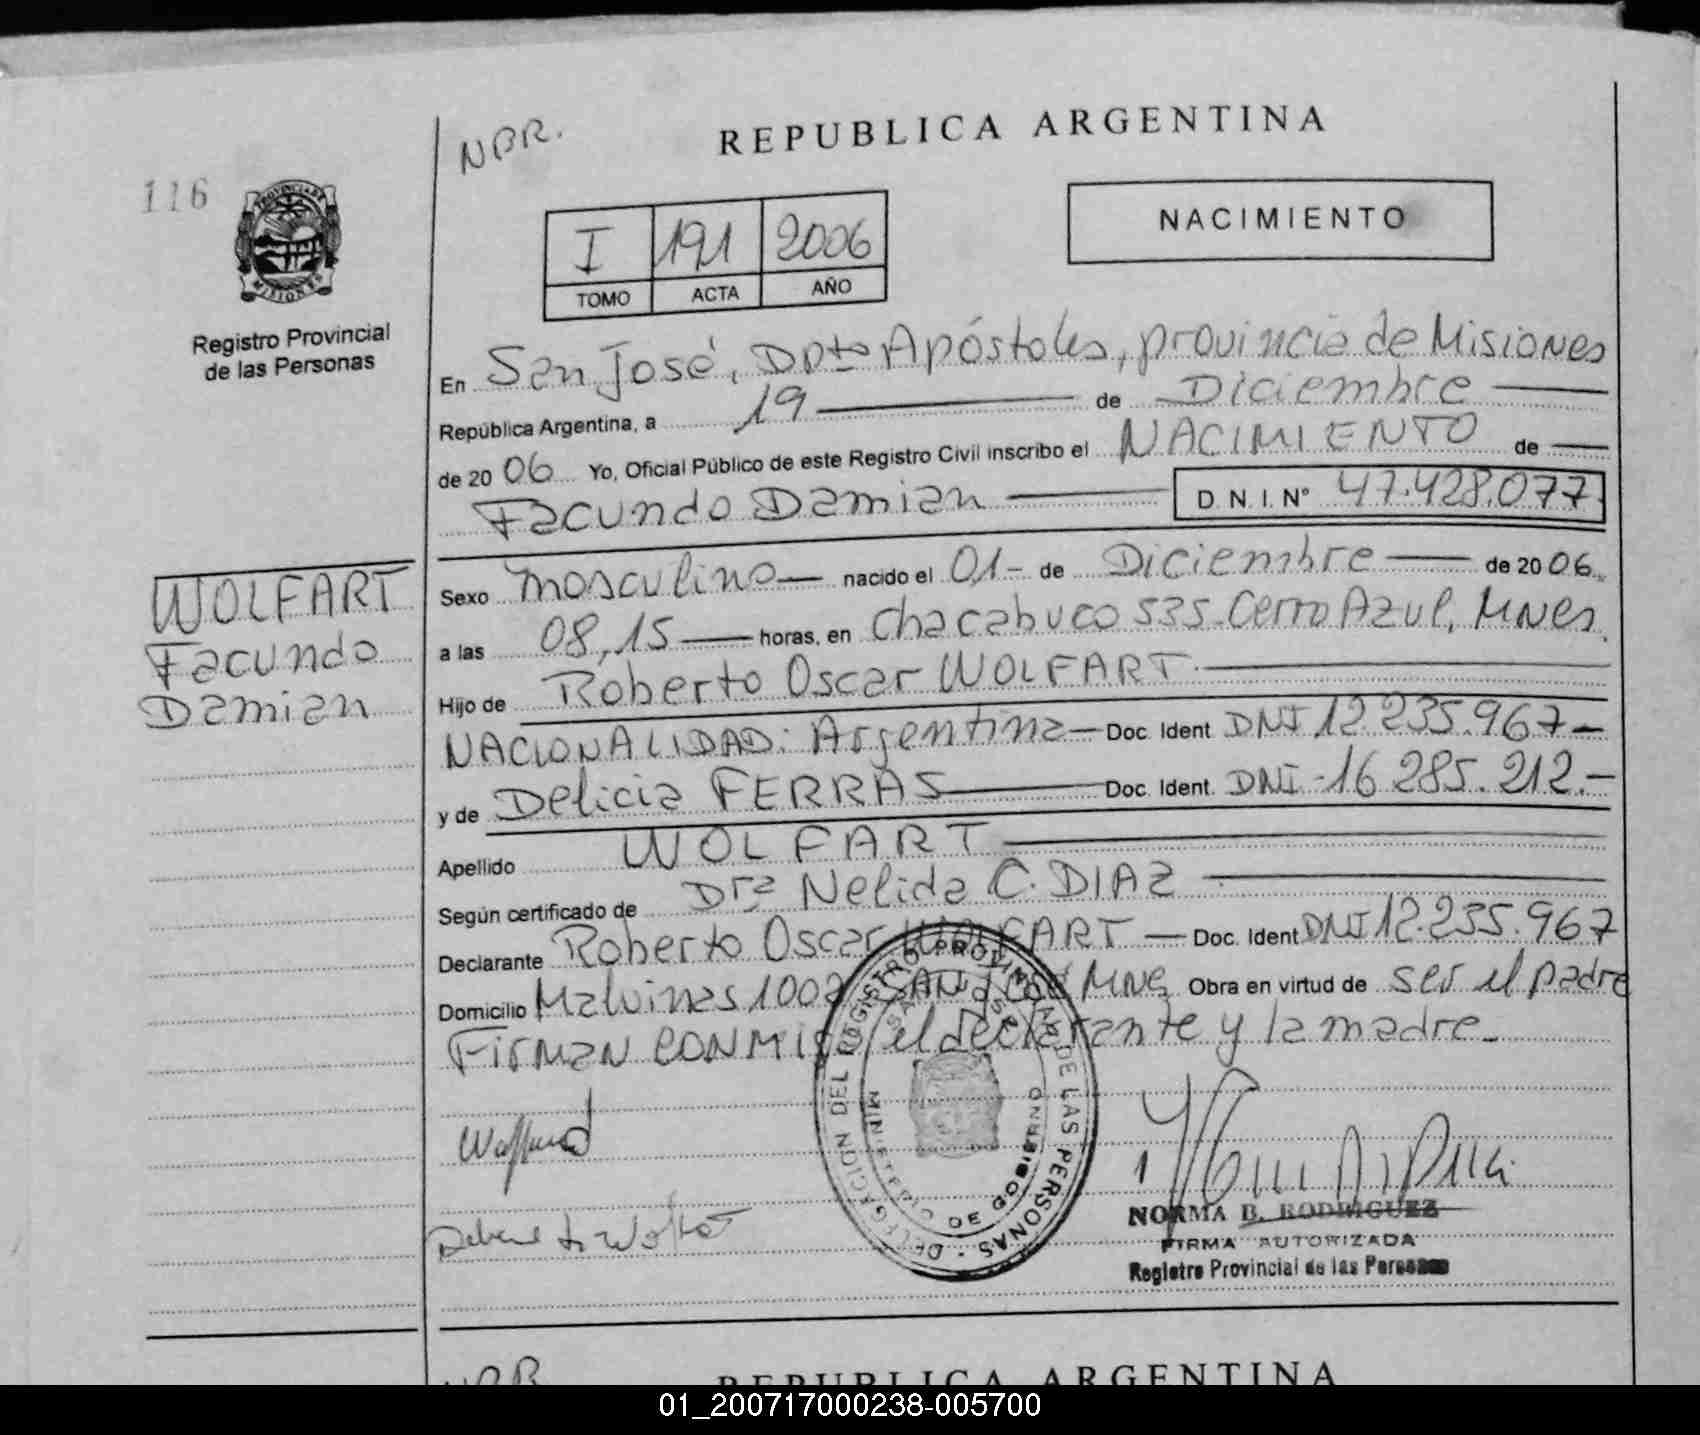 NBR.
REPUBLICA ARGENTINA
116
PROVINCIA DE
MISIONES
Registro Provincial
de las Personas
NACIMIENTO
I 191 2006
TOMO ACTA AÑO
En San José, Dpto Apóstoles, provincia de Misiones
República Argentina, a 19 de Diciembre
de 20 06 Yo, Oficial Público de este Registro Civil inscribo el NACIMIENTO de
Facundo Damian D.N.I. N° 47.428.077
WOLFART
Facundo
Damian
Sexo masculino nacido el 01- de Diciembre de 20 06
a las 08,15 horas, en Chacabuco 535. Cerro Azul, MNes.
Hijo de Roberto Oscar WOLFART
NACIONALIDAD: Argentina Doc. Ident DNI 12.235.967-
y de Delicia FERRAS Doc. Ident. DNI-16.285.212.-
Apellido WOLFART
Según certificado de Dra Nelida C. DIAZ
Declarante Roberto Oscar WOLFART Doc. Ident DNI 12.235.967
Domicilio Malvinas 1002 SAN JOSE MNes Obra en virtud de ser el padre
Firman CONMIGO el declarante y la madre.
DELEGACION DEL REGISTRO PROVINCIAL DE LAS PERSONAS
SAN JOSE
MINISTERIO DE GOBIERNO
NORMA B. RODRIGUEZ
FIRMA AUTORIZADA
Registro Provincial de las Personas
REPUBLICA ARGENTINA
01_200717000238-005700